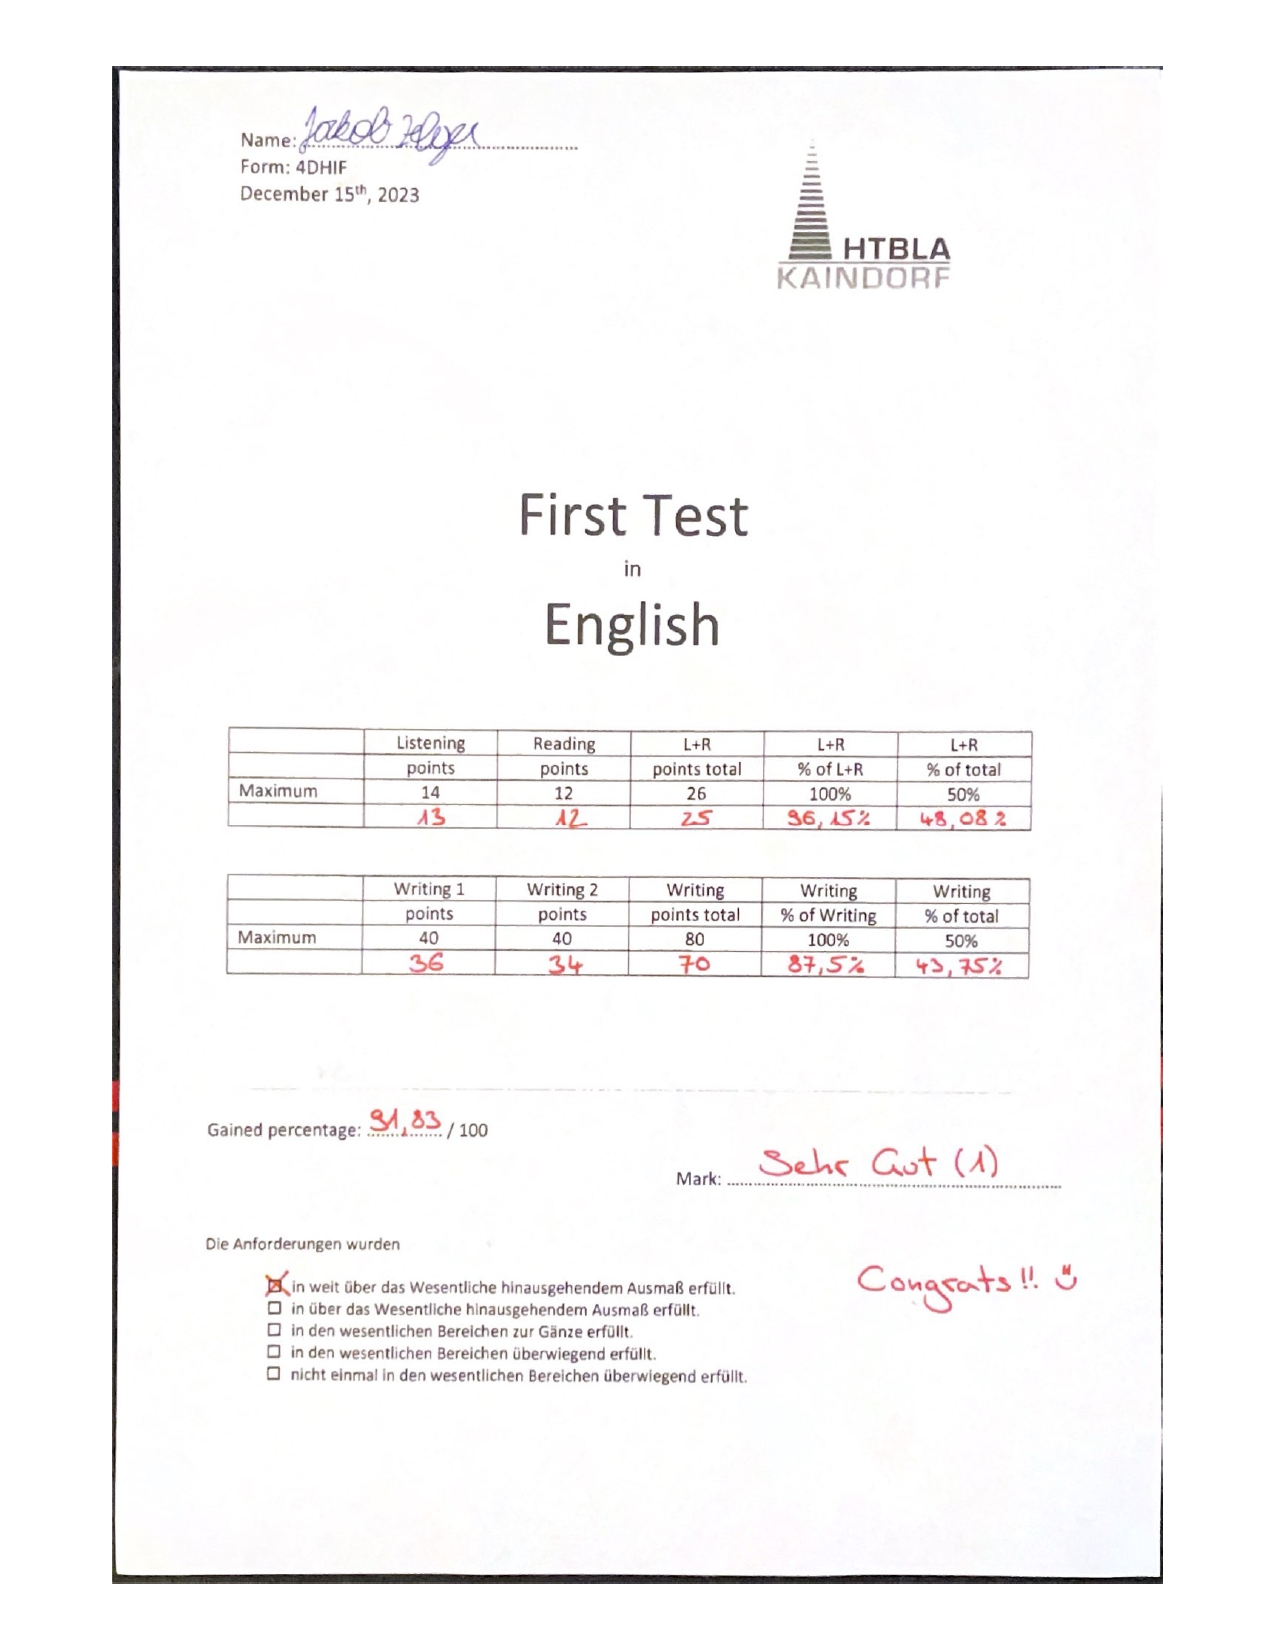 Name: Jakob
Form: 4DHIF
December 15th, 2023
HTBLA
KAINDORF
First Test
in
English
Listening Reading L+R L+R L+R
points points points total % of L+R % of total
Maximum 14 12 26 100% 50%
13 12 25 96,15% 48,08%
Writing 1 Writing 2 Writing Writing Writing
points points points total % of Writing % of total
Maximum 40 40 80 100% 50%
36 34 70 87,5% 43,75%
Gained percentage: 91,83 / 100
Mark: Sehr Gut (1)
Die Anforderungen wurden
☒ in weit über das Wesentliche hinausgehendem Ausmaß erfüllt.
Congrats!! ☺
☐ in über das Wesentliche hinausgehendem Ausmaß erfüllt.
☐ in den wesentlichen Bereichen zur Gänze erfüllt.
☐ in den wesentlichen Bereichen überwiegend erfüllt.
☐ nicht einmal in den wesentlichen Bereichen überwiegend erfüllt.